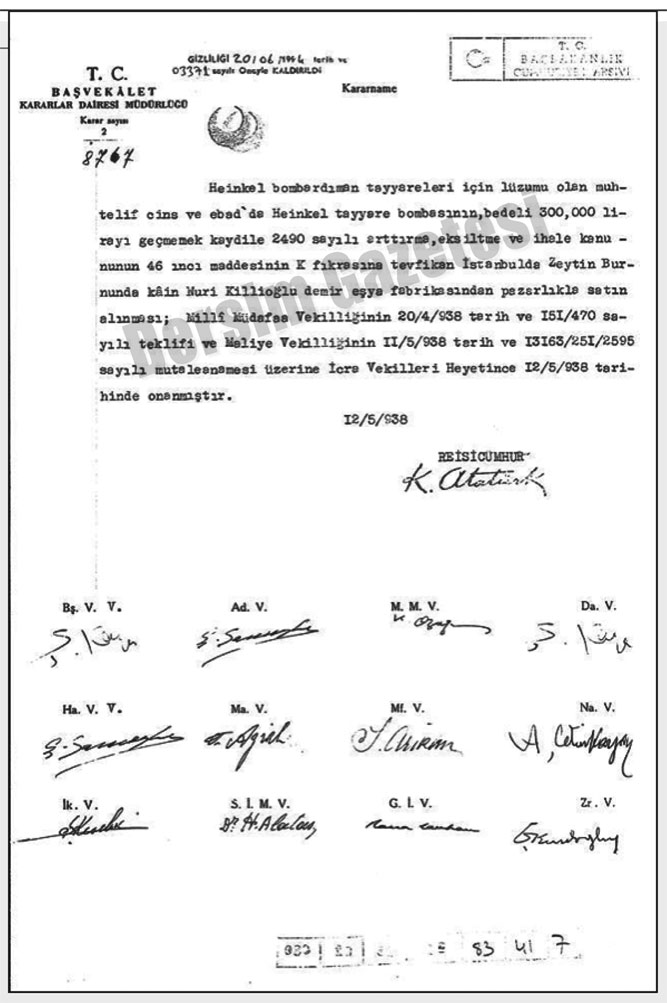 GİZLİLİĞİ 20/06/1994 tarih ve
03371 sayılı Onayla KALDIRILDI
T. C.
BAŞBAKANLIK
CUMHURİYET ARŞİVİ
T. C.
BAŞVEKÂLET
KARARLAR DAİRESİ MÜDÜRLÜĞÜ
Karar sayısı
2
8767
Kararname
Heinkel bombardıman tayyareleri için lüzumu olan muh-
telif cins ve ebad`da Heinkel tayyare bombasının,bedeli 300,000 li-
rayı geçmemek kaydile 2490 sayılı arttırma,eksiltme ve ihale kanu -
nunun 46 ıncı maddesinin K fıkrasına tevfikan İstanbulda Zeytin Bur-
nunda kâin Nuri Killioğlu demir eşya fabrikasından pazarlıkla satın
alınması; Millî Müdafaa Vekilliğinin 20/4/938 tarih ve I5I/470 sa-
yılı teklifi ve Maliye Vekilliğinin II/5/938 tarih ve I3I63/25I/2595
sayılı mutaleanamesi üzerine İcra Vekilleri Heyetince I2/5/938 tari-
hinde onanmıştır.
Dersim Gazetesi
I2/5/938
REİSİCUMHUR
K. Atatürk
Bş. V. V. Ad. V. M. M. V. Da. V.
Ha. V. V. Ma. V. Mf. V. Na. V.
A. Çetinkaya
İk. V. S. İ. M. V. G. İ. V. Zr. V.
Dr H. Alataş
83 41 7